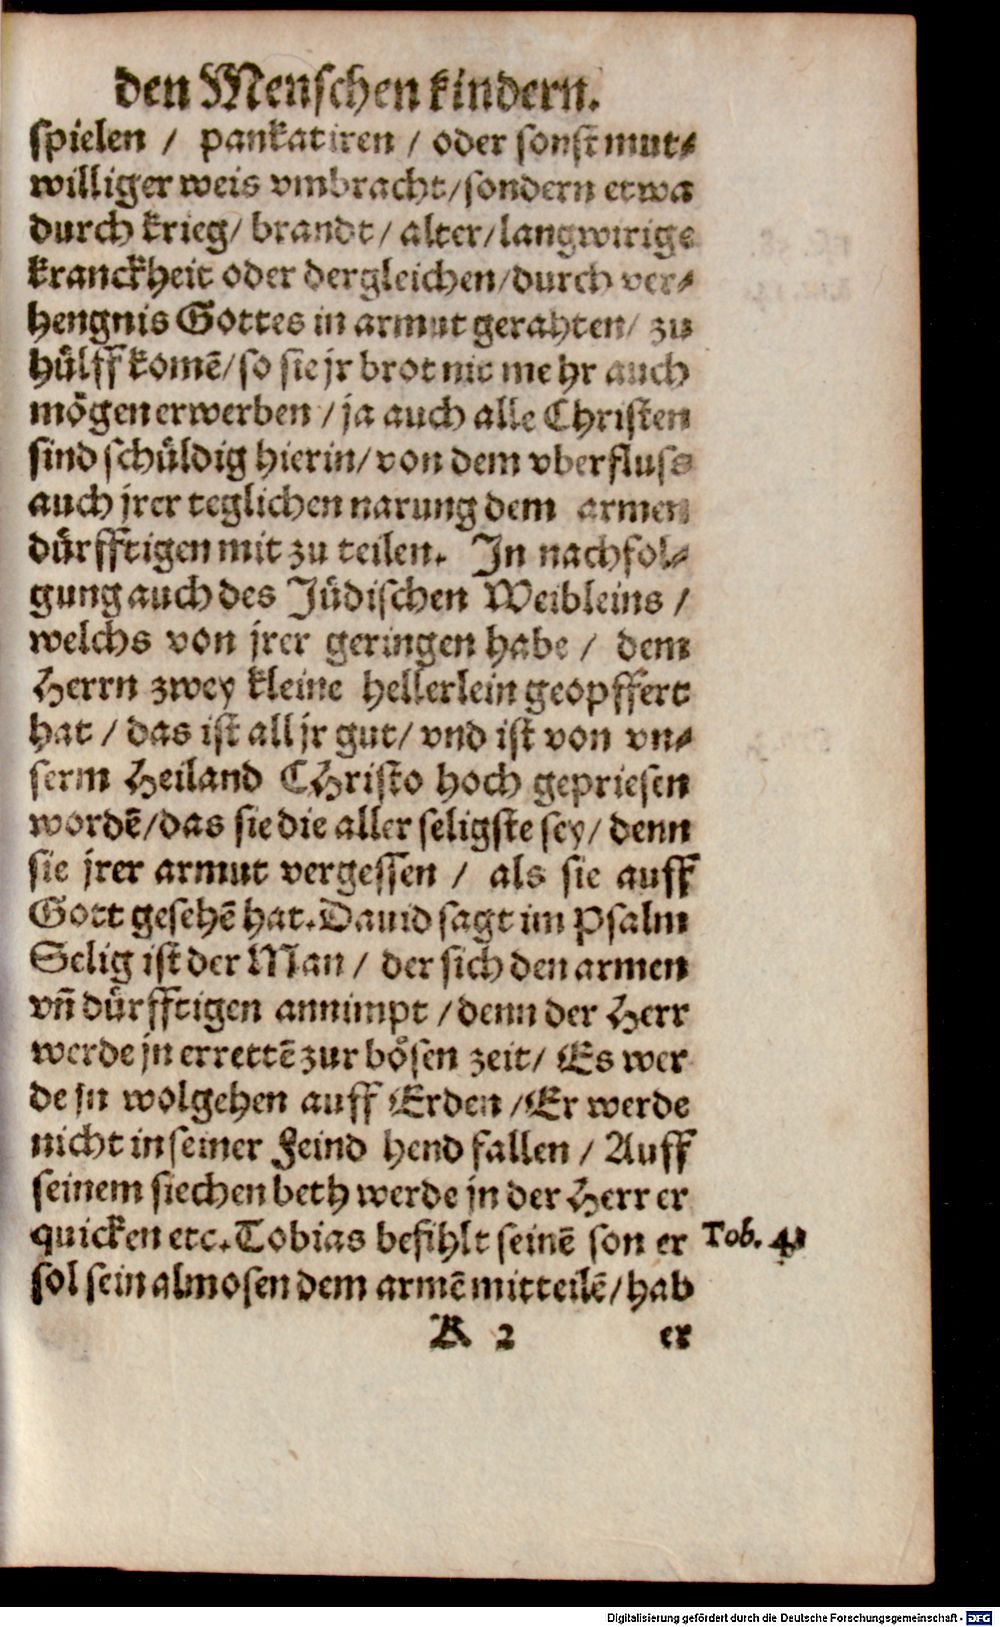 den Menschen kindern.
spielen / pankatiren / oder sonst mut⸗
williger weis vmbracht / sondern etwa
durch krieg / brandt / alter / langwirige
kranckheit oder dergleichen / durch ver⸗
hengnis Gottes in armut gerahten / zu
huͤlff komē / so sie jr brot nit mehr auch
moͤgen erwerben / ja auch alle Christen
sind schuͤldig hierin / von dem vberfluss
auch jrer teglichen narung dem armen
duͤrfftigen mit zu teilen. In nachfol⸗
gung auch des Juͤdischen Weibleins /
welchs von jrer geringen habe / dem
Herrn zwey kleine hellerlein geopffert
hat / das ist all jr gut / vnd ist von vn⸗
serm Heiland CHristo hoch gepriesen
wordē / das sie die aller seligste sey / denn
sie jrer armut vergessen / als sie auff
Gott gesehē hat. Dauid sagt im Psalm
Selig ist der Man / der sich den armen
vn̄ duͤrfftigen annimpt / denn der Herr
werde jn errettē zur boͤsen zeit / Es wer
de jn wolgehen auff Erden / Er werde
nicht in seiner Feind hend fallen / Auff
seinem siechen beth werde jn der Herr er
quicken etc. Tobias befihlt seinē son er
Tob. 4.
sol sein almosen dem armē mitteilē / hab
K 2 er
Digitalisierung gefördert durch die Deutsche Forschungsgemeinschaft - DFG